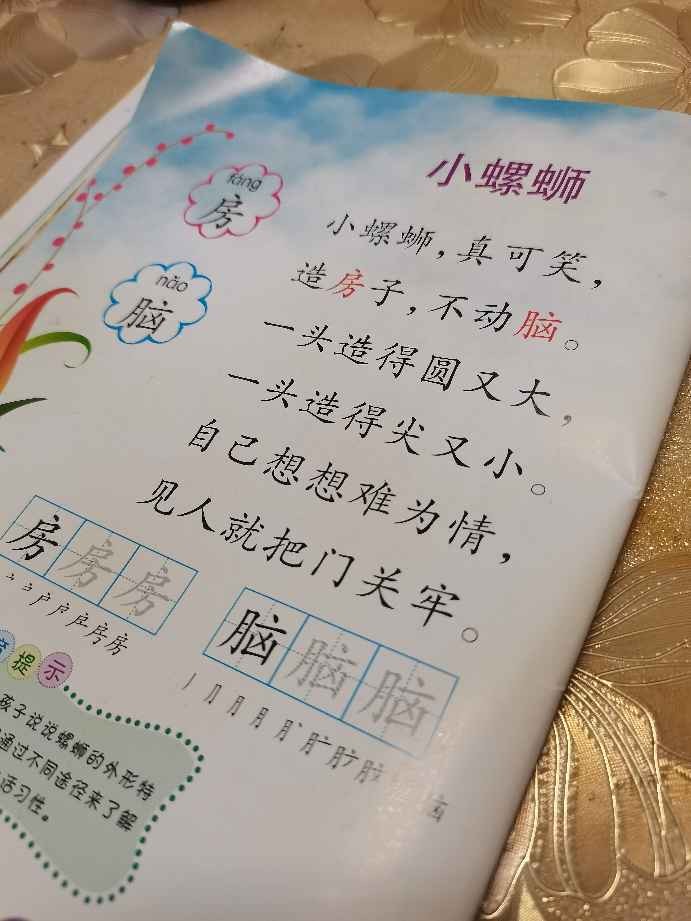 小螺蛳
fáng
房
nǎo
脑
小螺蛳，真可笑，
造房子，不动脑。
一头造得圆又大，
一头造得尖又小。
自己想想难为情，
见人就把门关牢。
房房房
脑脑脑
提示
孩子说说螺蛳的外形特
通过不同途径来了解
活习性。